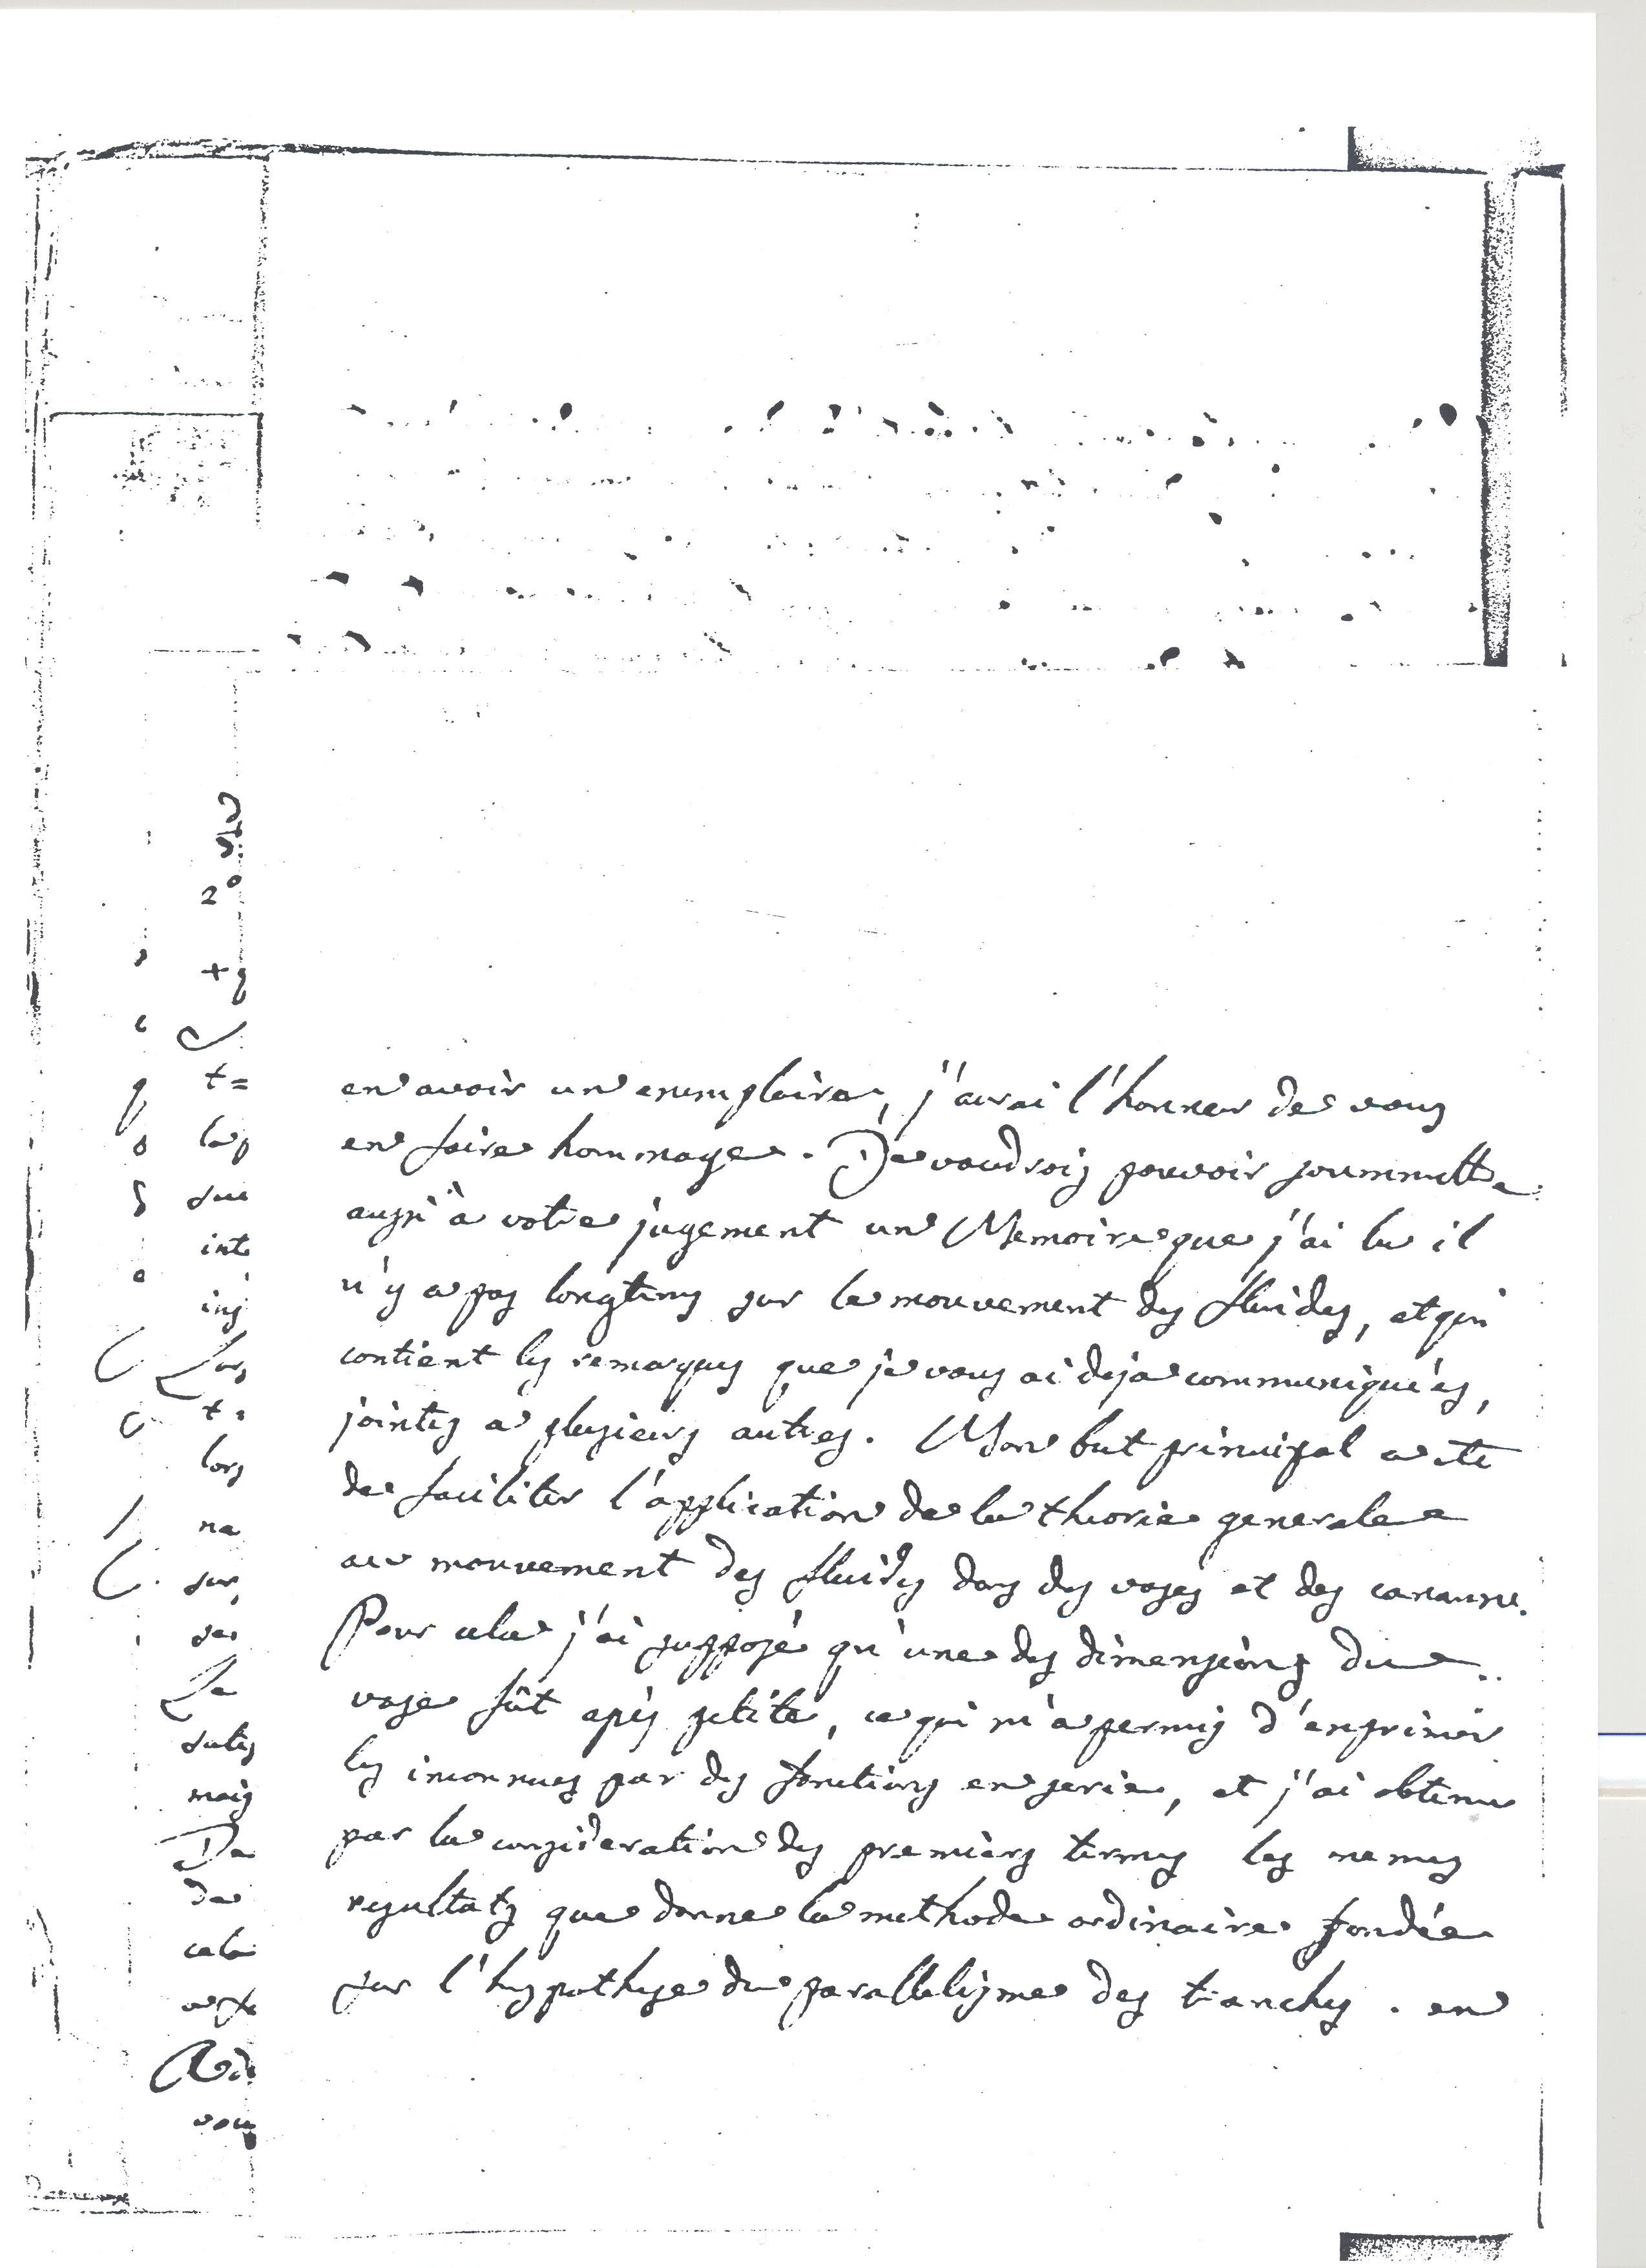 2°
t =
lap
sui
inte
t =
lors
ne
sur
Je
mais
De
de
cela
vous
en avoir un exemplaire, j'aurai l'honneur de vous
en faire hommage. Je voudrois pouvoir soummettre
aussi à votre jugement un Memoire que j'ai lu il
n'y a pas longtems sur le mouvement des fluides, et qui
contient les remarques que je vous ai deja communiquées,
jointes a plusieurs autres. Mon but principal a eté
de faciliter l'application de la theorie generale
au mouvement des fluides dans des vases et des canaux.
Pour cela j'ai supposé qu'une des dimensions du
vase fût assés petite, ce qui m'a permis d'exprimer
les inconnues par des fonctions en serie, et j'ai obtenu
par la consideration des premiers termes les memes
resultats que donne la methode ordinaire fondée
sur l'hypothese du parallelisme des tranches. en